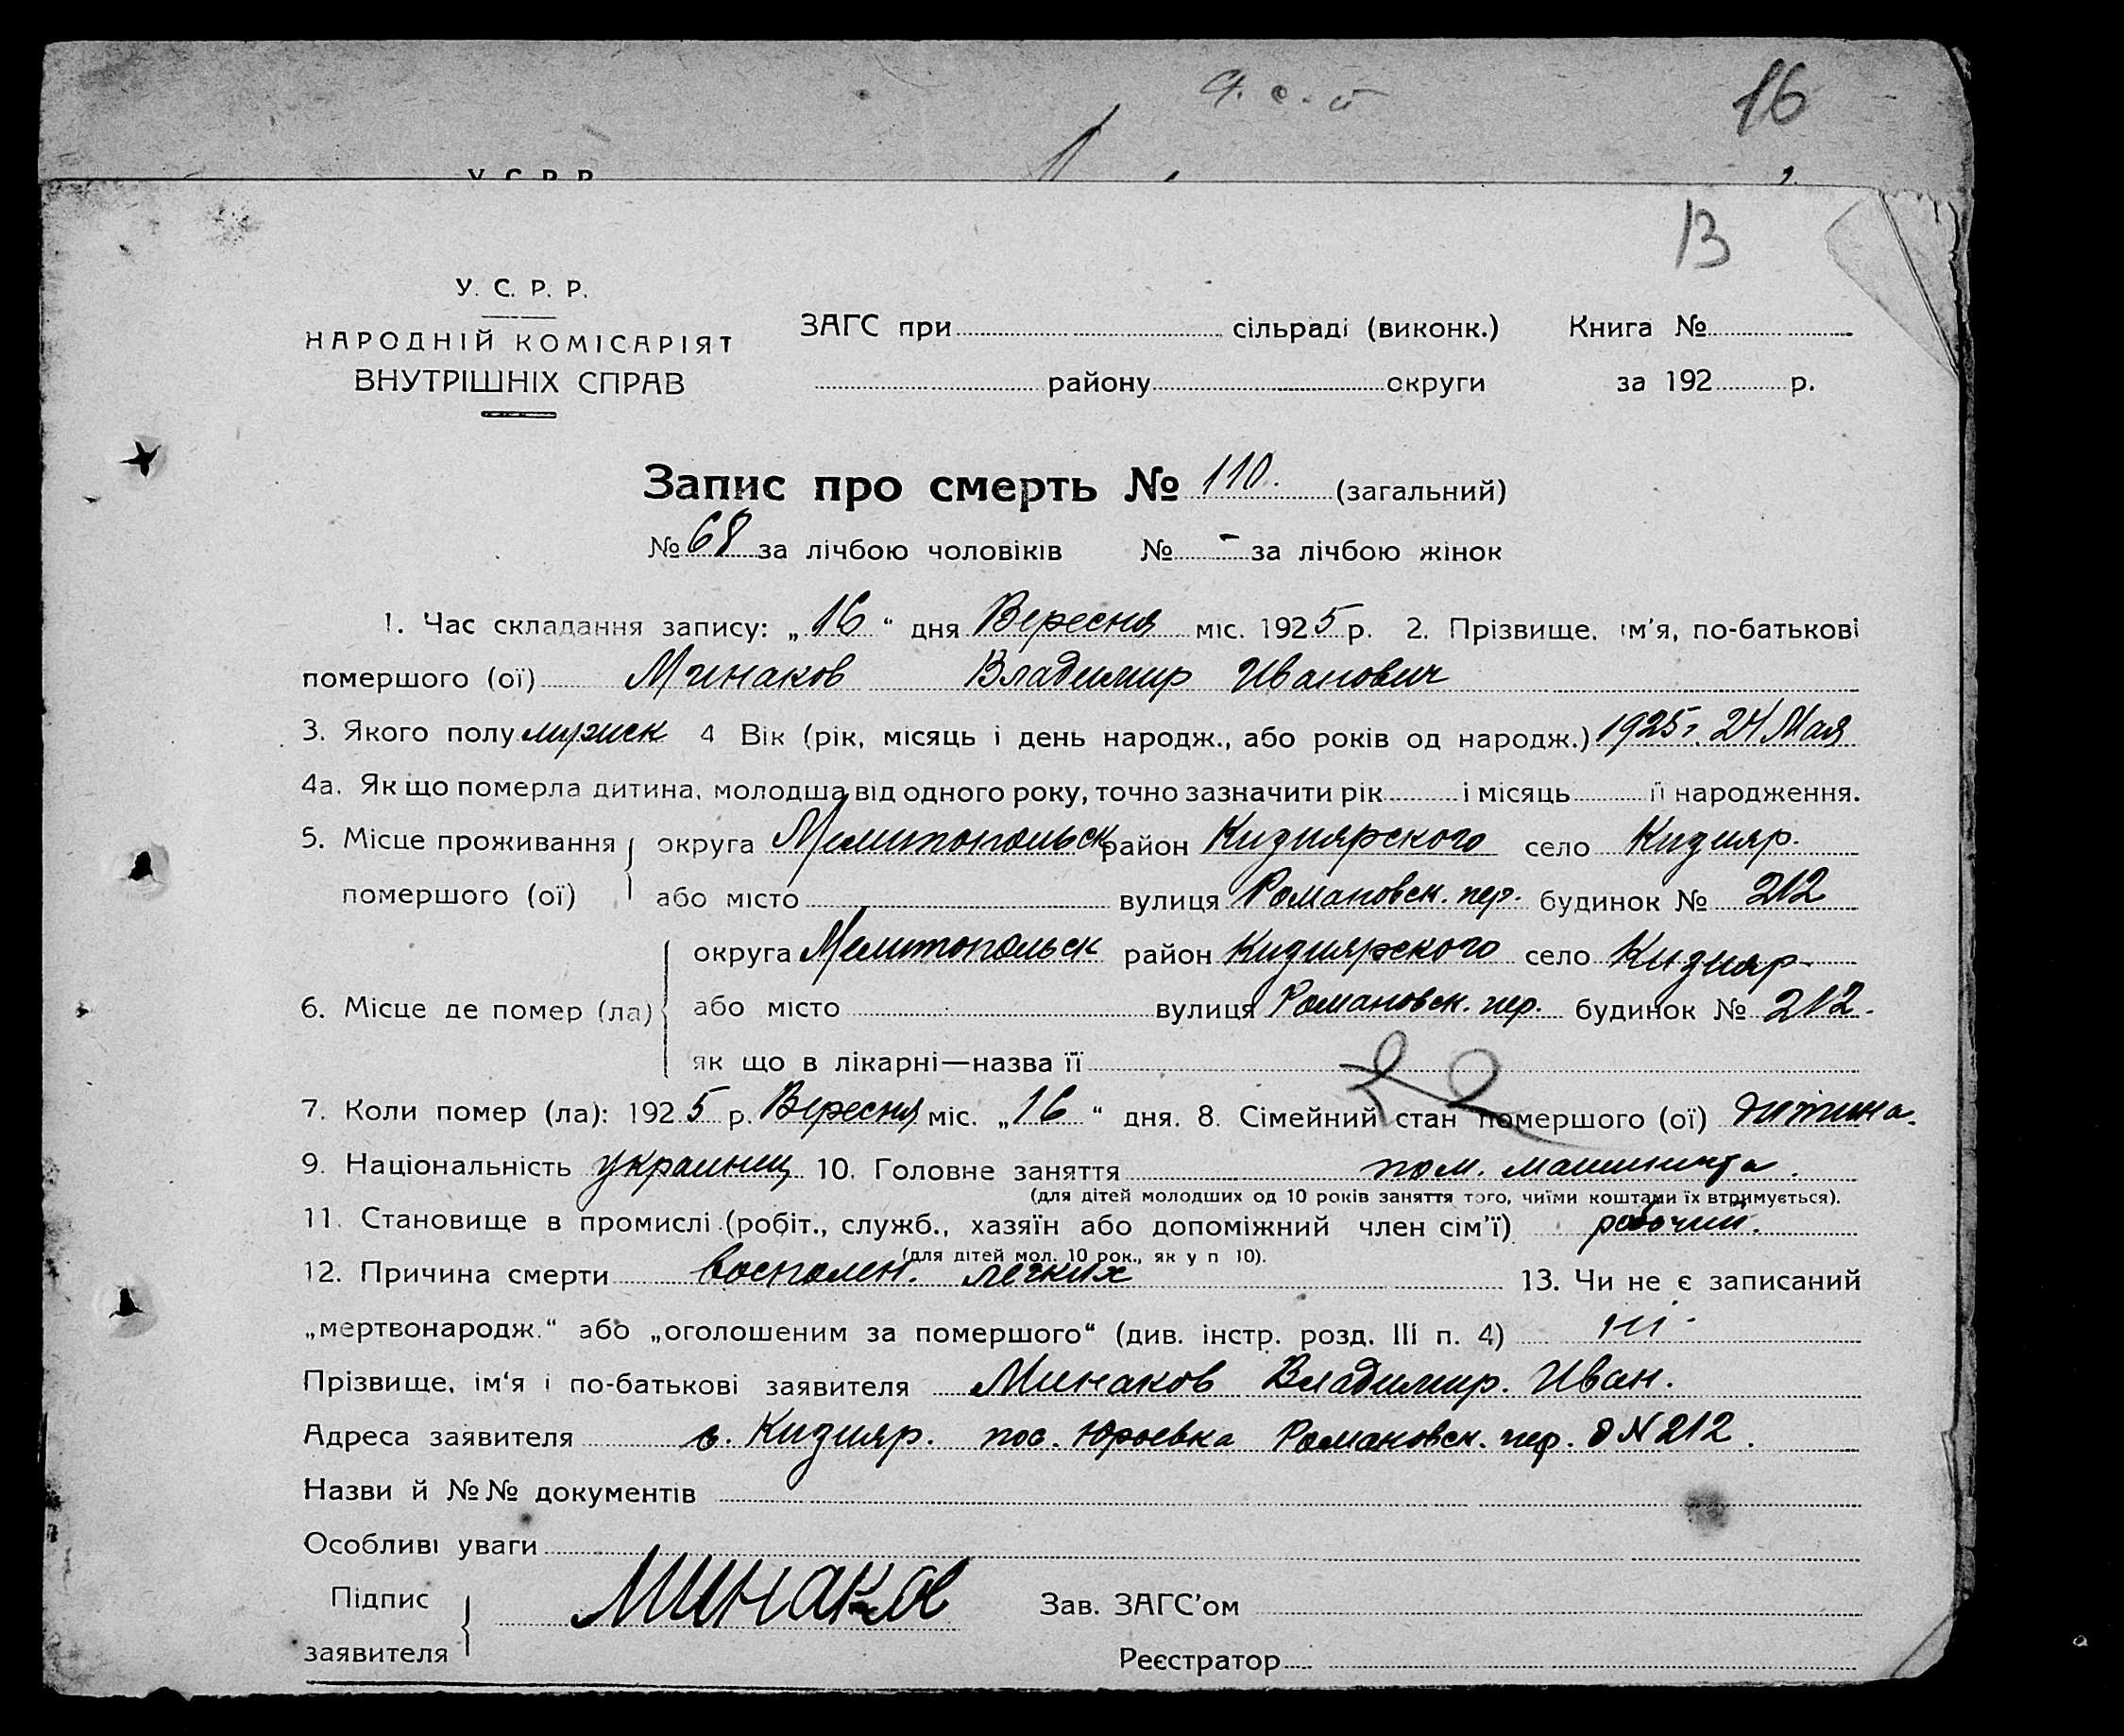 16
У. С. Р. Р.
13
У. С. Р. Р.
НАРОДНІЙ КОМІСАРІЯТ
ВНУТРІШНІХ СПРАВ
ЗАГС при сільраді (виконк.) Книга №
району округи за 192 р.
Запис про смерть № 110. (загальний)
№ 68 за лічбою чоловіків № - за лічбою жінок
1. Час складання запису: „16“ дня Вересня міс. 1925 р. 2. Прізвище, ім'я, по-батькові
помершого (ої) Минаков Владимир Иванович
3. Якого полу мужск 4 Вік (рік, місяць і день народж., або років од народж.) 1925 г. 24 Мая
4а. Як що померла дитина, молодша від одного року, точно зазначити рік і місяць її народження.
5. Місце проживання округа Мелитопольск район Кизиярского село Кизияр.
помершого (ої) або місто вулиця Романовск. пер. будинок № 212
округа Мелитопольск район Кизиярского село Кизияр
6. Місце де помер (ла) або місто вулиця Романовск. пер. будинок № 212.
як що в лікарні—назва її
7. Коли помер (ла): 1925 р. Вересня міс. „16“ дня. 8. Сімейний стан помершого (ої) дитина.
9. Національність украинец 10. Головне заняття пом. машиниста.
(для дітей молодших од 10 років заняття того, чиїми коштами їх втримується).
11. Становище в промислі (робіт., служб., хазяїн або допоміжний член сім'ї) рабочий.
(для дітей мол. 10 рок., як у п 10).
12. Причина смерти воспален. легких 13. Чи не є записаний
„мертвонародж.“ або „оголошеним за помершого“ (див. інстр. розд. III п. 4) ні
Прізвище, ім'я і по-батькові заявителя Минаков Владимир. Иван.
Адреса заявителя с. Кизияр. пос. Юрьевка Романовск. пер. д N 212.
Назви й №№ документів
Особливі уваги
Підпис
заявителя
Минаков
Зав. ЗАГС'ом
Реєстратор